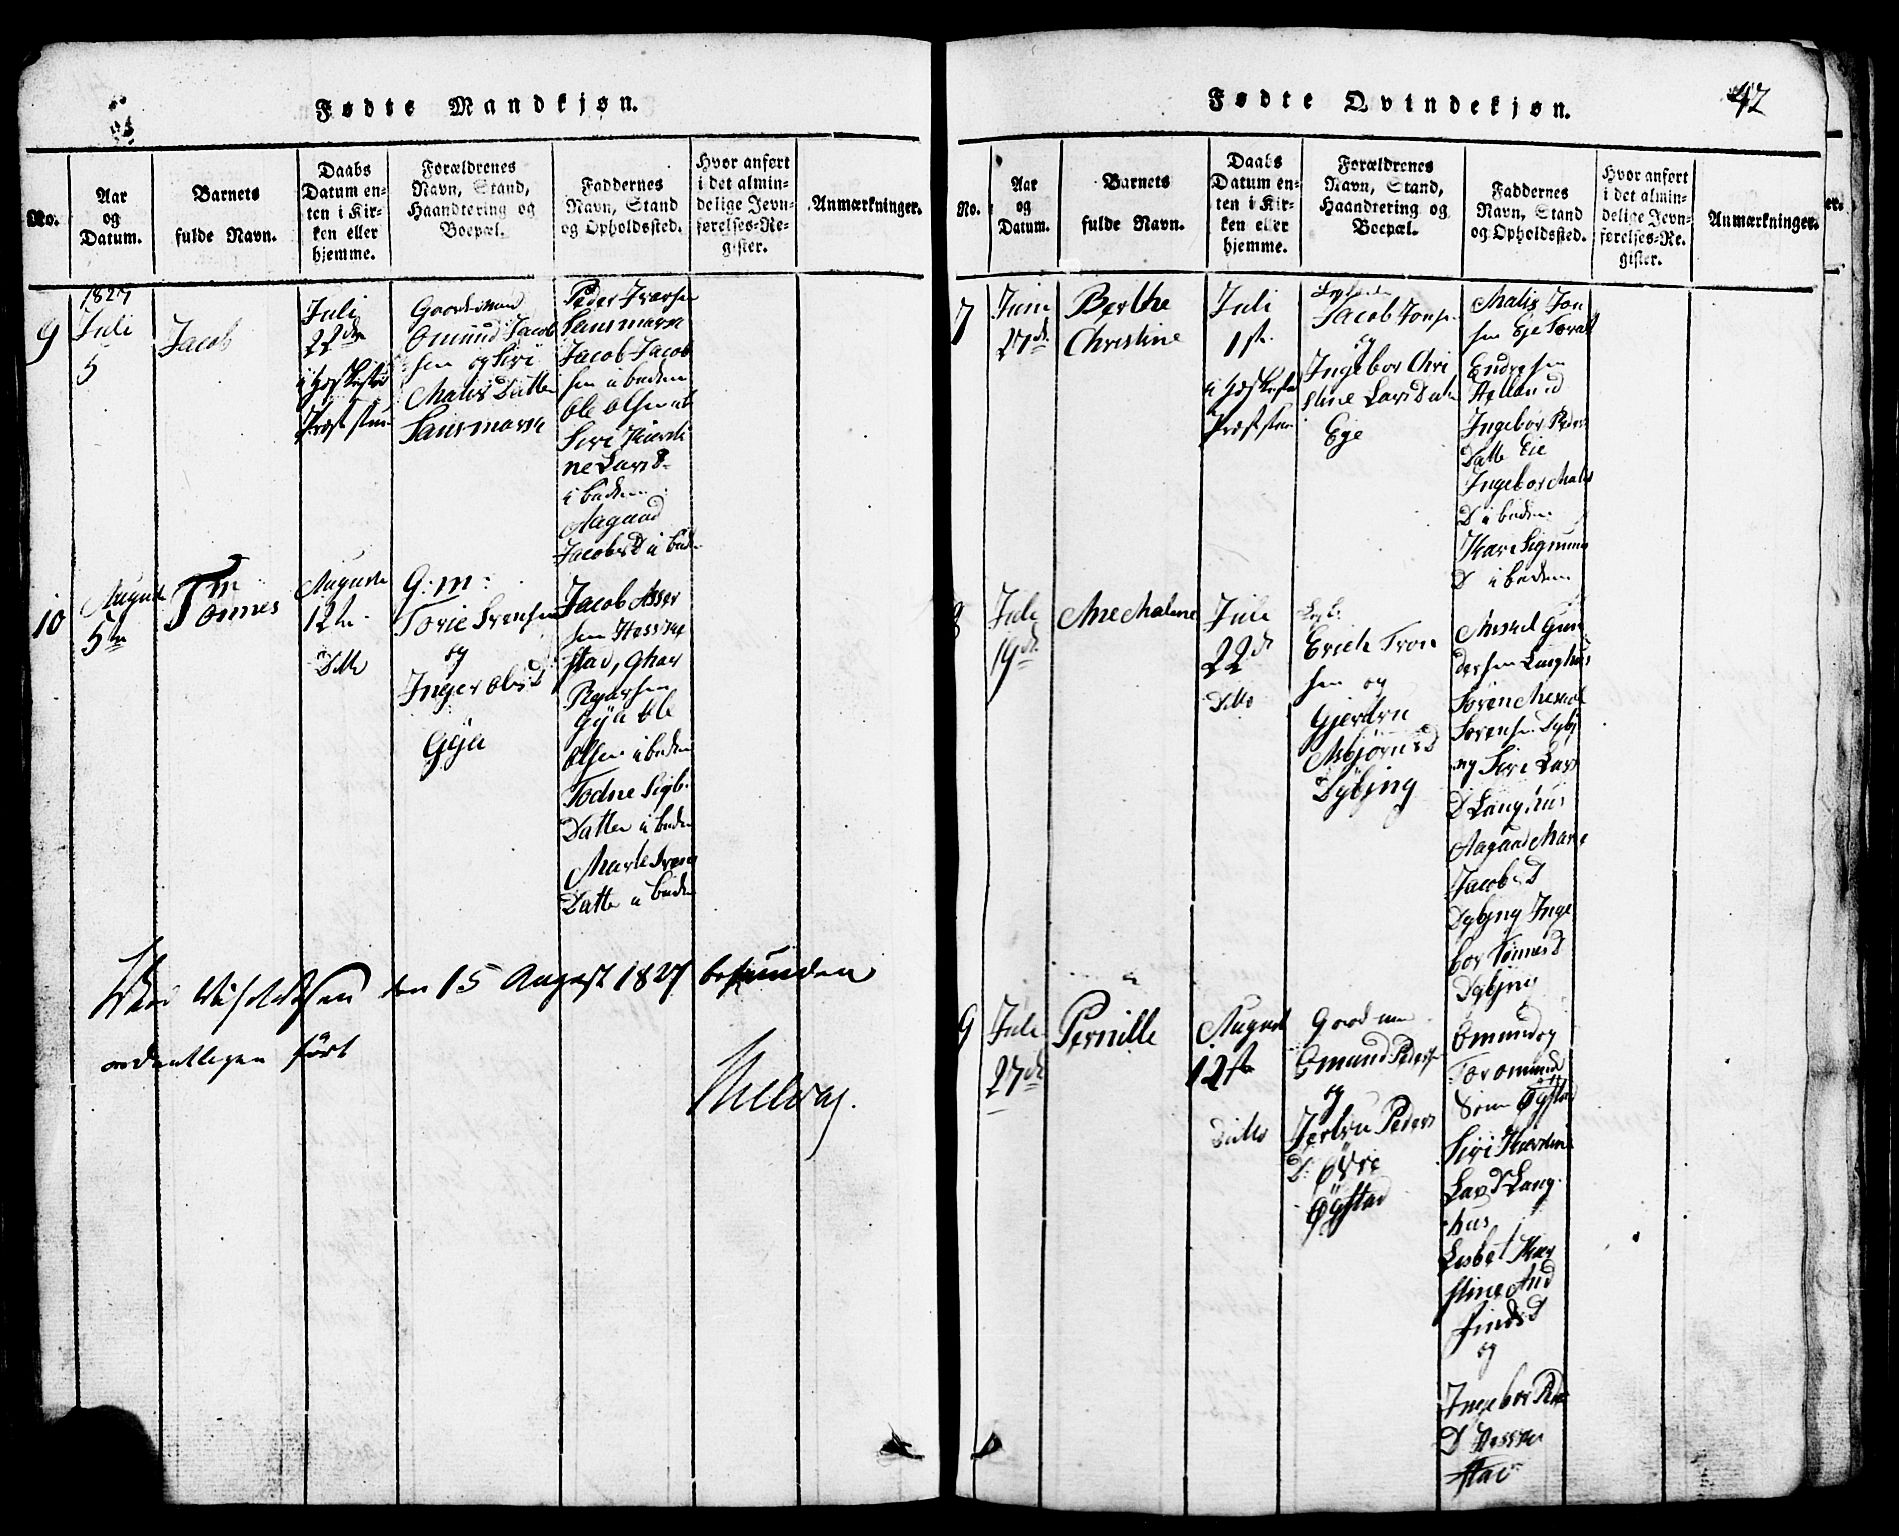 Fødte Mandkjøn.
No.
Aar
og
Datum.
Barnets
fulde Navn.
Daabs
Datum en-
ten i Kir-
ken eller
hjemme.
Forældrenes
Navn, Stand,
Haandtering og
Boepæl.
Faddernes
Navn, Stand
og Opholdssted.
Hvor anført
i det almin-
delige Jevn-
førelses-Re-
gister.
Anmærkninger.
9
1827
Juli
5
Jacob
Juli
22de
Præst
Gaardmand
Omund Jacob
sen og Siri
Malis Datter
Sansmarn
Peder Ivarsen
Sansmarn
Jacob Jacob
sen ibadem
Ole Olsen
Siri Kiersti
ne Lars D
ibadem
Aagaad
Jacobs D ibadm
10
August
5te
Tønnes
Auguste
12te
Ditto
G: m:
Torie Svensen
og
Inger Ols D
Gya
Jacob Asser
sen Hessne
stad, Ghar
Rejersen
Gya Ole
Olsen ibadem
Todne Sigb.
Datter ibadm
Marte Svens
Datter ibadm
den 15 August 1827 befunden
ordentligen ført
Fødte Qvindekjøn.
42
No.
Aar
og
Datum.
Barnets
fulde Navn.
Daabs
Datum en-
ten i Kir-
ken eller
hjemme.
Forældrenes
Navn, Stand,
Haandtering og
Boepæl.
Faddernes
Navn, Stand
og Opholdssted.
Hvor anført
i det almin-
delige Jevn-
førelses-Re-
gister.
Anmærkninger.
7
Juni
27de
Berthe
Christine
Juli
1ste
Præst
Jacob Jons
og
Ingebor Chri
stine Lars Datr
Eye
Malis Jon
sen Eje Toral
Endresen
Helland
Ingebor Peders
Datte Eie
Ingebor Malis
D ibadem
Kari Sigmun
D ibadem
8
Juli
19de
Ane Malene
Juli
22de
Ditto
Erich Tron
sen og
Gjertru
Asbjørns D
Dybing
Gun
dersen Langhus
Søren
Sørensen Dybj
ng Siri Lars
D Langhus
Aagaad Marie
Jacobs D
Dybjng Inge
bor Tønnes D
Dybjng
9
Juli
27de
Pernille
August
12te
Ditto
Gaardm
Omund Peders
og
Jertru Peders
D: Øvre
Øgstad
Omund og
Tor Omund
Søn Øgstad
Siri Kirstin
Lars D Lang
hus
Lisbet Kier
stine And
finds D
og
Ingebor Ped
D Hessne
stad